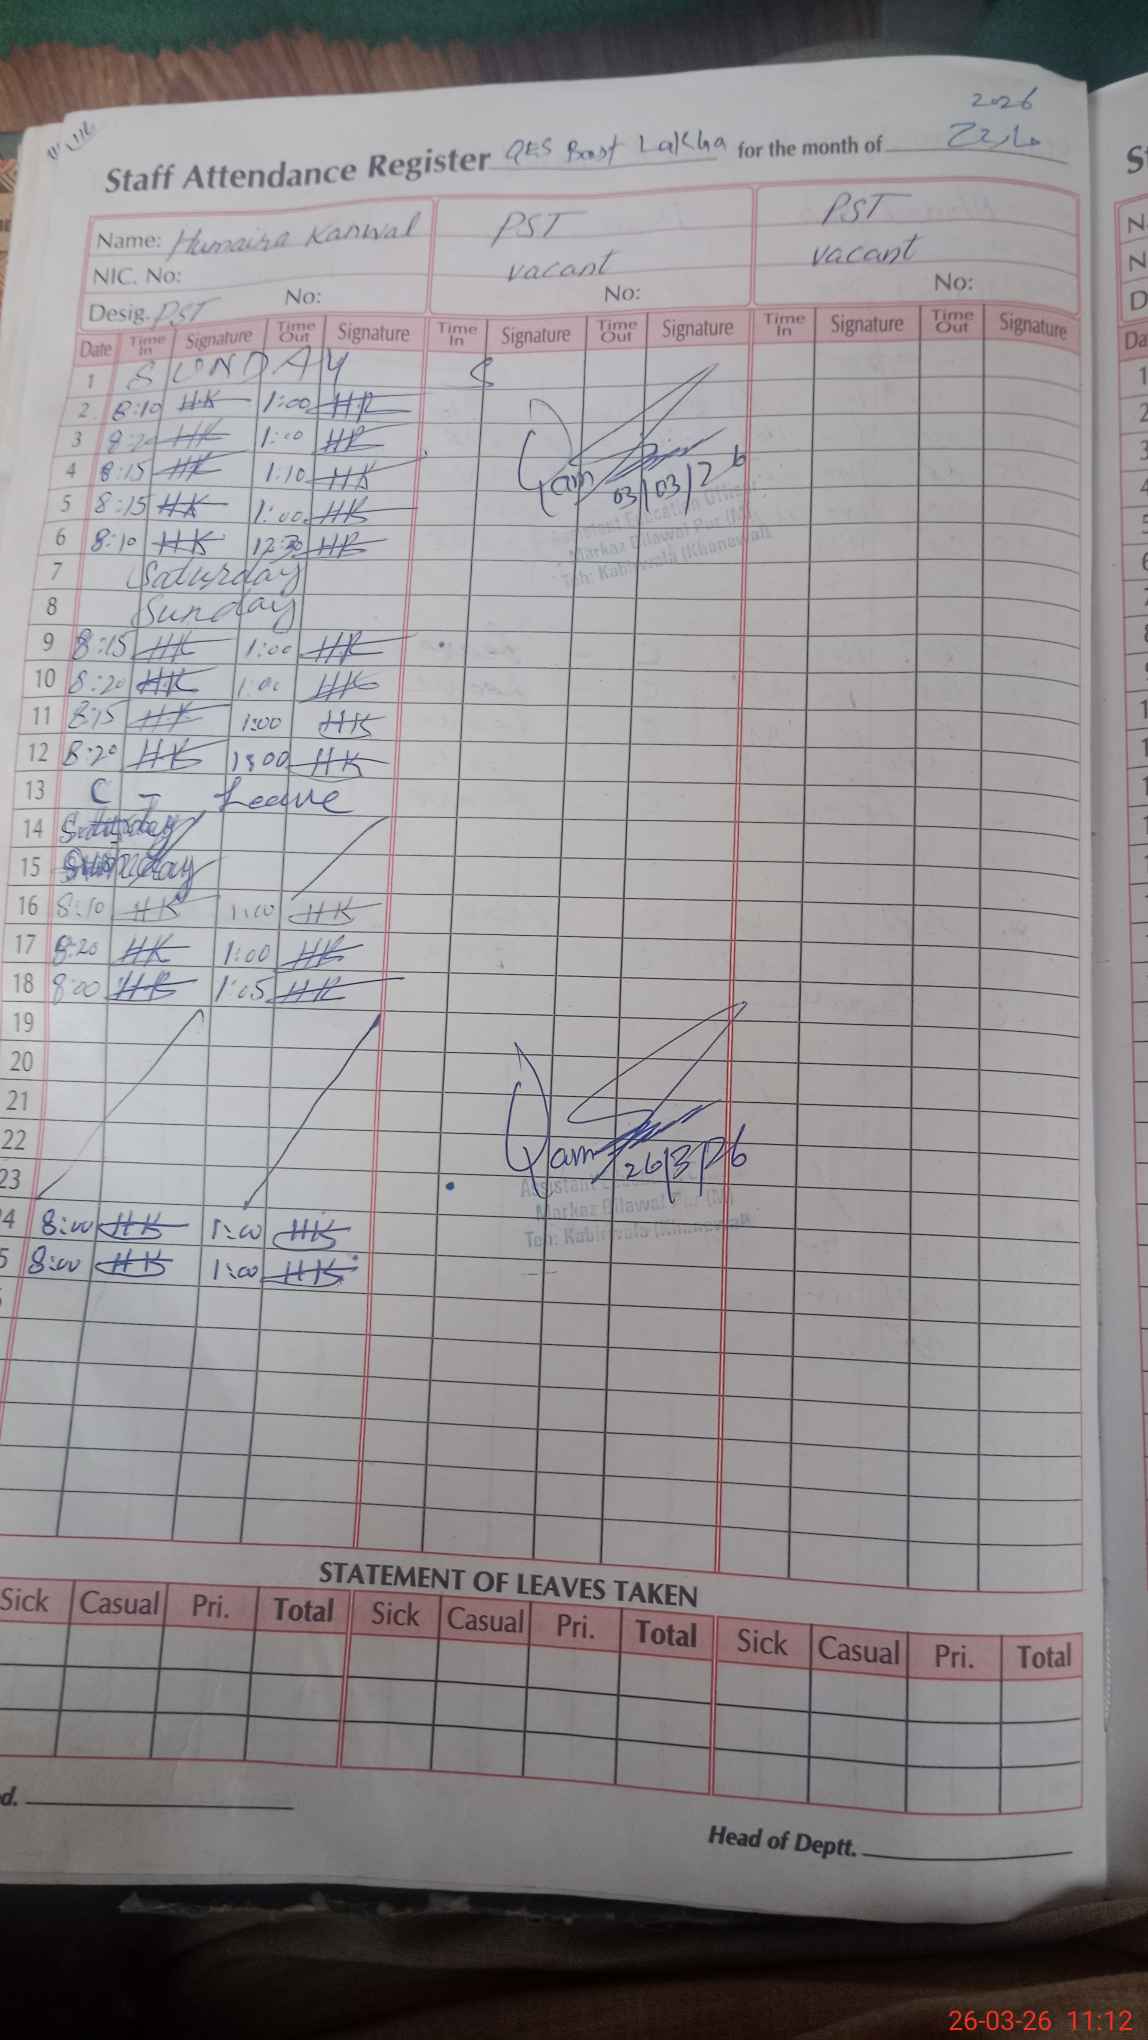 2026
Staff Attendance Register GES Bast Lakha for the month of مارچ
Name: Humaira Kanwal PST PST
NIC. No: vacant vacant
No: No: No:
Desig. PST
Date Time In Signature Time Out Signature Time In Signature Time Out Signature Time In Signature Time Out Signature
1 SUNDAY
2 8:10 HK 1:00 HK
3 8:20 HK 1:00 HK
4 8:15 HK 1:10 HK
03/03/26
5 8:15 HK 1:00 HK
Assistant Education Officer
6 8:10 HK 12:30 HK
Markaz Dilawal Pur (M)
Teh: Kabirwala (Khanewal)
7 Saturday
8 Sunday
9 8:15 HK 1:00 HK
10 8:20 HK 1:00 HK
11 8:15 HK 1:00 HK
12 8:20 HK 1:00 HK
13 C - Leave
14 Saturday
15 Sunday
16 8:10 HK 1:00 HK
17 8:20 HK 1:00 HK
18 8:00 HK 1:05 HK
19
20
21
22
26/3/26
23
Assistant
Markaz Dilawal Pur (M)
4 8:00 HK 1:00 HK
Teh: Kabirwala (Khanewal)
5 8:00 HK 1:00 HK
STATEMENT OF LEAVES TAKEN
Sick Casual Pri. Total Sick Casual Pri. Total Sick Casual Pri. Total
d.
Head of Deptt.
26-03-26 11:12